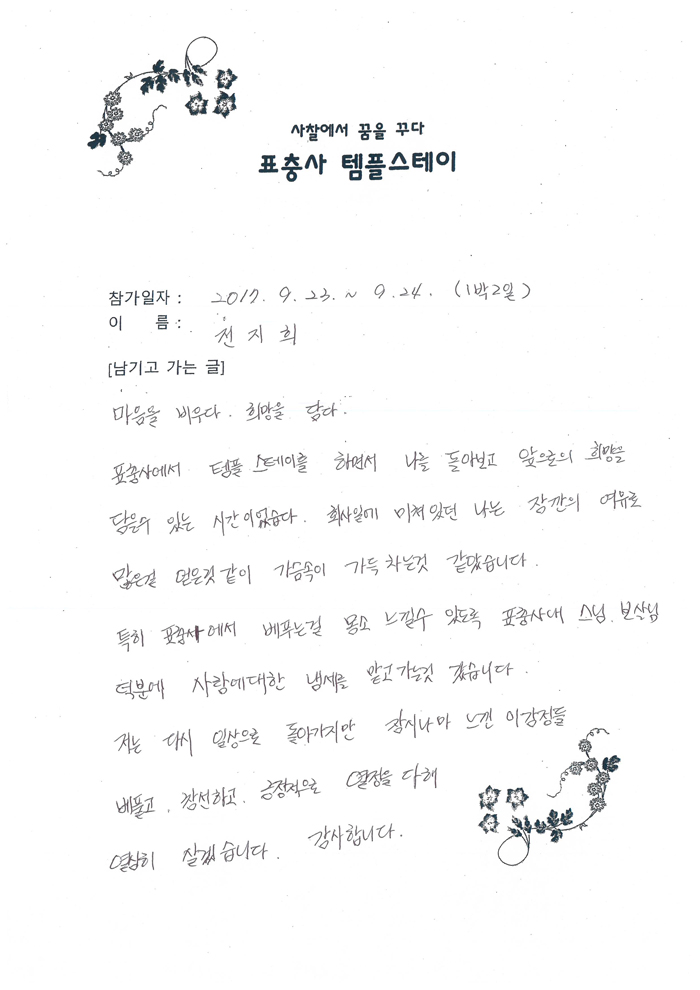 사찰에서 꿈을 꾸다
표충사 템플스테이
참가일자 : 2017. 9. 23. ~ 9.24. (1박2일)
이 름 : 전지희
[남기고 가는 글]
마음을 비우다. 희망을 담다.
표충사에서 템플스테이를 하면서 나를 돌아보고 앞으로의 희망을
담을수 있는 시간이었습다. 회사일에 미쳐있던 나는 잠깐의 여유로
많은걸 얻은것 같이 가슴속이 가득 차는것 같았습니다.
특히 표충사에서 베푸는걸 몸소 느낄수 있도록 표충사내 스님, 보살님
덕분에 사람에대한 냄새를 맡고가는것 같습니다.
저는 다시 일상으로 돌아가지만 잠시나마 느낀 이감정들
베풀고, 참선하고, 긍정적으로 열정을 다해
열심히 살겠습니다. 감사합니다.